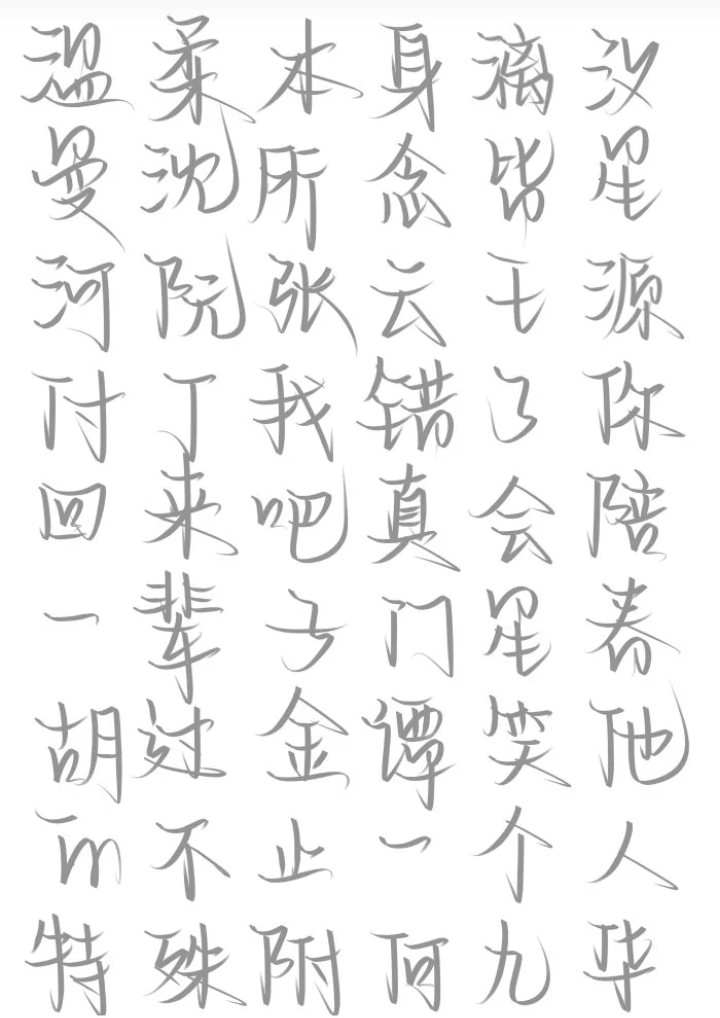 温柔本身漓汉
曼沈所念皆星
河阮张云七源
付丁我错了你
回来吧真会陪
一辈子门星春
胡过金谭笑他
们不止一个人
特殊附何九华